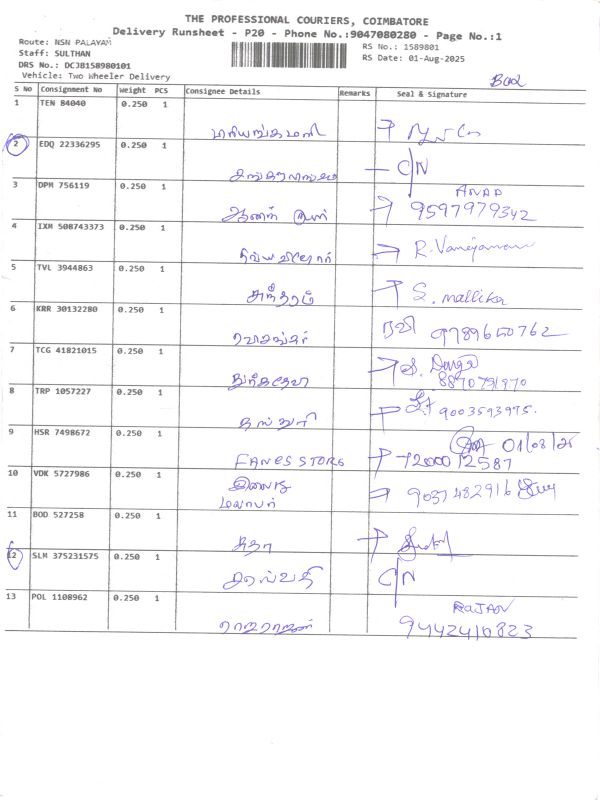 THE PROFESSIONAL COURIERS, COIMBATORE
Delivery Runsheet - P20 - Phone No.:9047080280 - Page No.:1
Route: NSN PALAYAM
RS No.: 1589801
Staff: SULTHAN
RS Date: 01-Aug-2025
DRS No.: DCJB158980101
Vehicle: Two Wheeler Delivery
S No Consignment No Weight PCS Consignee Details Remarks Seal & Signature
1 TEN 84040 0.250 1
2 EDQ 22336295 0.250 1
C/N
3 DPM 756119 0.250 1
ANAD
ஆனந்த் குமார் 9597979342
4 IXM 508743373 0.250 1
R.
5 TVL 3944863 0.250 1
S. mallika
6 KRR 30132280 0.250 1
ரவி 9789650762
7 TCG 41821015 0.250 1
8870791970
8 TRP 1057227 0.250 1
கஸ்தூரி 9003593975.
9 HSR 7498672 0.250 1
01/08/25
FANES STORE 7200012587
10 VDK 5727986 0.250 1
9037482916
11 BOD 527258 0.250 1
சுதா
12 SLM 375231575 0.250 1
C/N
13 POL 1108962 0.250 1
RAJAN
ராஜராஜன் 9442410823